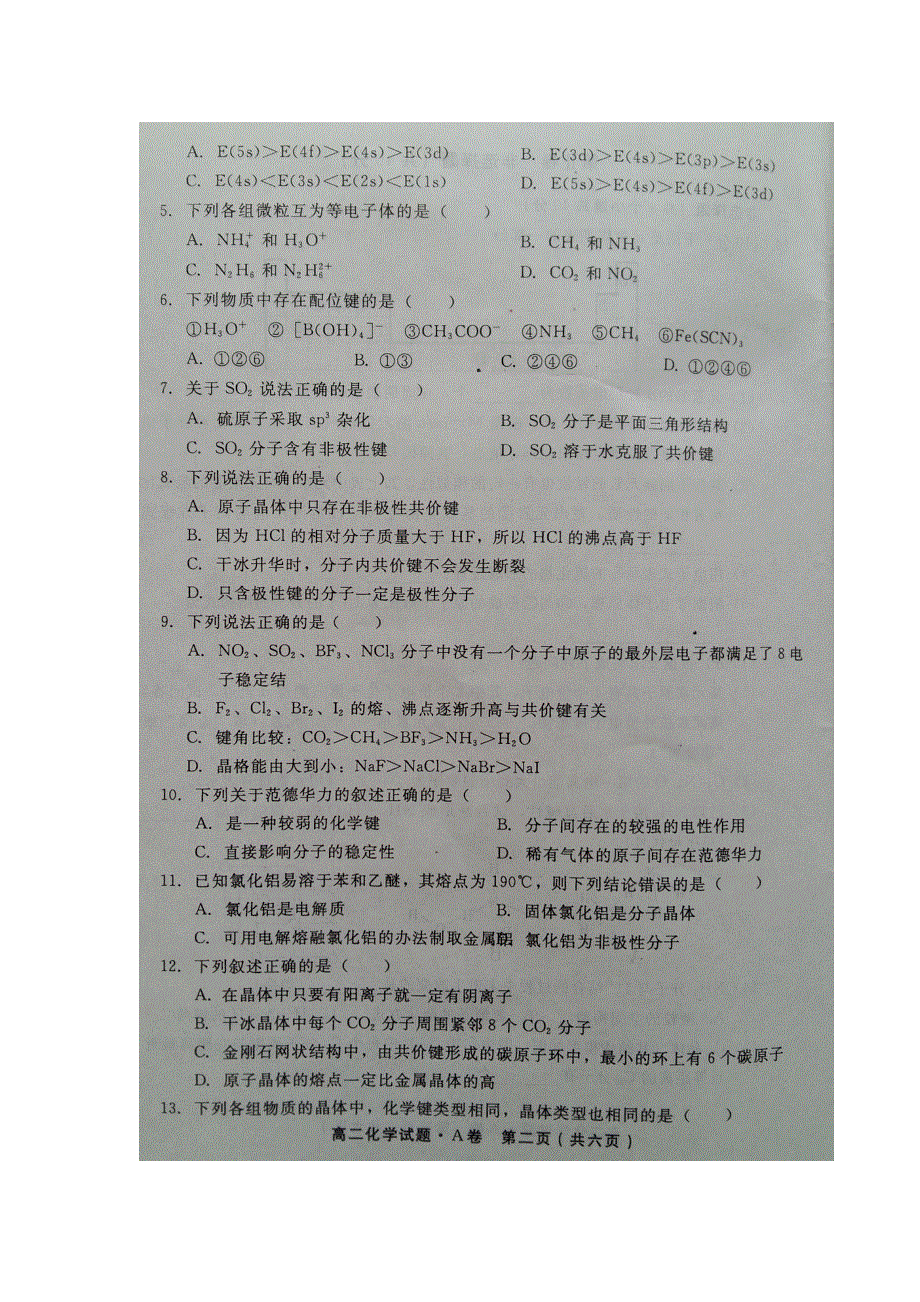 A. E(5s)>E(4f)>E(4s)>E(3d) B. E(3d)>E(4s)>E(3p)>E(3s)
C. E(4s)<E(3s)<E(2s)<E(1s) D. E(5s)>E(4s)>E(4f)>E(3d)
5. 下列各组微粒互为等电子体的是（ ）
A. NH₄⁺ 和 H₃O⁺ B. CH₄ 和 NH₃
C. N₂H₆ 和 N₂H₆²⁺ D. CO₂ 和 NO₂
6. 下列物质中存在配位键的是（ ）
①H₃O⁺ ②［B(OH)₄］⁻ ③CH₃COO⁻ ④NH₃ ⑤CH₄ ⑥Fe(SCN)₃
A. ①②⑥ B. ①③ C. ②④⑥ D. ①②④⑥
7. 关于 SO₂ 说法正确的是（ ）
A. 硫原子采取 sp³ 杂化 B. SO₂ 分子是平面三角形结构
C. SO₂ 分子含有非极性键 D. SO₂ 溶于水克服了共价键
8. 下列说法正确的是（ ）
A. 原子晶体中只存在非极性共价键
B. 因为 HCl 的相对分子质量大于 HF，所以 HCl 的沸点高于 HF
C. 干冰升华时，分子内共价键不会发生断裂
D. 只含极性键的分子一定是极性分子
9. 下列说法正确的是（ ）
A. NO₂、SO₂、BF₃、NCl₃ 分子中没有一个分子中原子的最外层电子都满足了 8 电
子稳定结
B. F₂、Cl₂、Br₂、I₂ 的熔、沸点逐渐升高与共价键有关
C. 键角比较：CO₂>CH₄>BF₃>NH₃>H₂O
D. 晶格能由大到小：NaF>NaCl>NaBr>NaI
10. 下列关于范德华力的叙述正确的是（ ）
A. 是一种较弱的化学键 B. 分子间存在的较强的电性作用
C. 直接影响分子的稳定性 D. 稀有气体的原子间存在范德华力
11. 已知氯化铝易溶于苯和乙醚，其熔点为 190℃，则下列结论错误的是（ ）
A. 氯化铝是电解质 B. 固体氯化铝是分子晶体
C. 可用电解熔融氯化铝的办法制取金属铝 氯化铝为非极性分子
12. 下列叙述正确的是（ ）
A. 在晶体中只要有阳离子就一定有阴离子
B. 干冰晶体中每个 CO₂ 分子周围紧邻 8 个 CO₂ 分子
C. 金刚石网状结构中，由共价键形成的碳原子环中，最小的环上有 6 个碳原子
D. 原子晶体的熔点一定比金属晶体的高
13. 下列各组物质的晶体中，化学键类型相同，晶体类型也相同的是（ ）
高二化学试题·A卷 第二页（共六页）